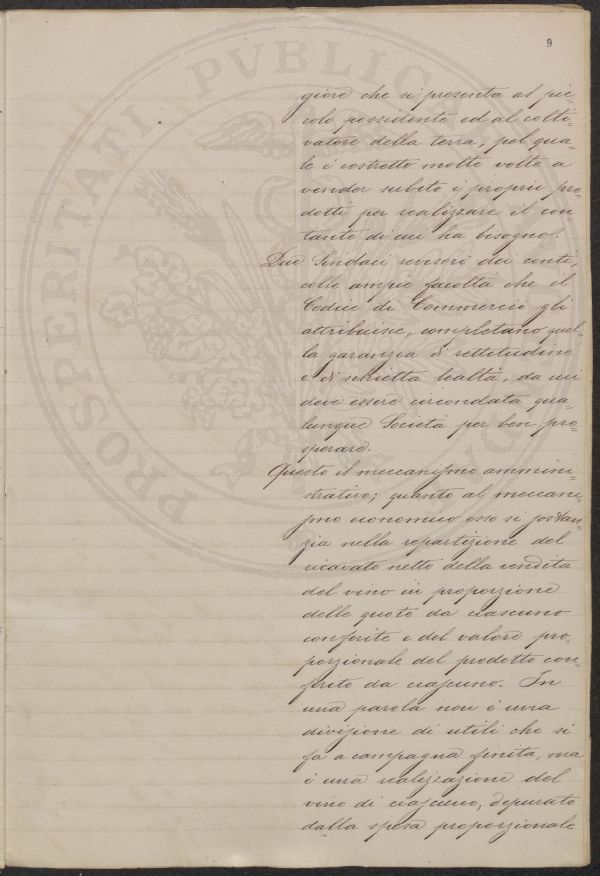 9
PROSPERITATI PVBLICAE
giore che si presenta al pic=
colo possidente ed al colti=
vatore della terra, pel qua=
le è costretto molte volte a
vender subito i proprii pro=
dotti per realizzare il con=
tante di cui ha bisogno.
Due Sindaci revisori dei conti,
colle ampie facoltà che il
Codice di Commercio gli
attribuisce, completano quel=
la garanzia di rettitudine
e di schietta lealtà, da cui
deve essere circondata qua=
lunque Società per ben pro=
sperare.
Questo il meccanismo ammini=
strativo; quanto al meccani=
smo economico esso si sostan=
zia nella repartizione del
ricavato netto della vendita
del vino in proporzione
delle quote da ciascuno
conferite e del valore pro=
porzionale del prodotto con=
ferito da ciascuno. In
una parola non è una
divisione di utili che si
fa a campagna finita, ma
è una realizzazione del
vino di ciascuno, depurato
dalla spesa proporzionale